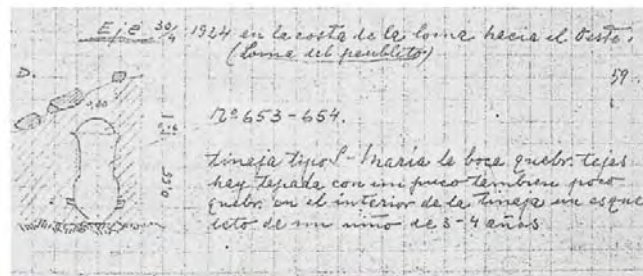 Eje 30/4 1924 en la costa de la loma hacia el Oeste.
(Loma del pueblito)
59.
D.
0,80
Nº 653-654.
0.55
tinaja tipo S-María la boca quebr. tejas
hay tapada con un puco tambien poco
quebr. en el interior de la tinaja un esque
leto de un niño de 3-4 años